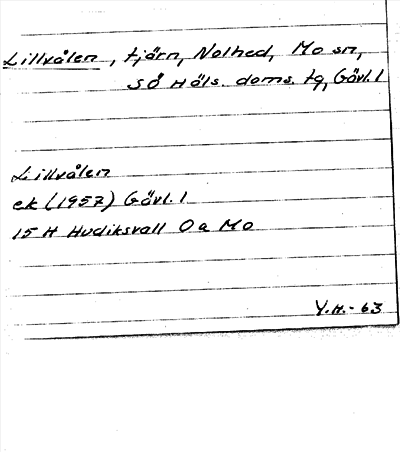 Lillvålen, tjärn, Nolhed, Mo sn,
SÖ Häls. doms. tg, Gävl. l
Lillvålen
ek (1957) Gävl. l
15 H Hudiksvall 0a Mo
Y.H.- 63